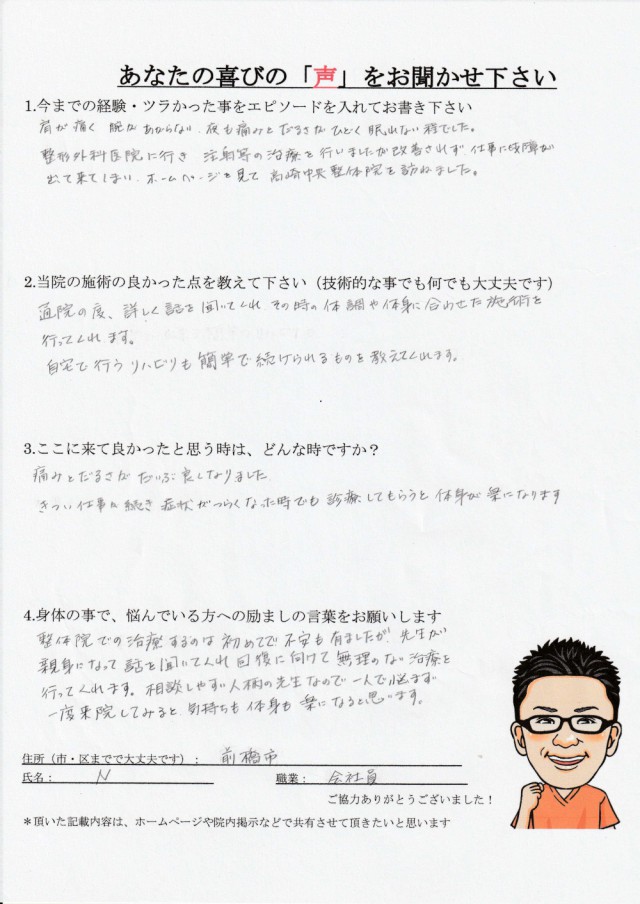 あなたの喜びの「声」をお聞かせ下さい
1.今までの経験・ツラかった事をエピソードを入れてお書き下さい
肩が痛く 腕があがらない 夜も痛みとだるさがひどく眠れない程でした。
整形外科医院に行き 注射等の治療を行いましたが改善されず 仕事に支障が
出て来てしまい、ホームページを見て 高崎中央整体院を訪ねました。
2.当院の施術の良かった点を教えて下さい（技術的な事でも何でも大丈夫です）
通院の度、詳しく話を聞いてくれ その時の体調や体身に合わせた施術を
行ってくれます。
自宅で行うリハビリも簡単で続けられるものを教えてくれます。
3.ここに来て良かったと思う時は、どんな時ですか？
痛みとだるさがだいぶ良くなりました
きつい仕事が続き 症状がつらくなった時でも診療してもらうと体身が楽になります
4.身体の事で、悩んでいる方への励ましの言葉をお願いします
整体院での治療するのは初めてで不安も有ましたが 先生が
親身になって話を聞いてくれ回復に向けて無理のない治療を
行ってくれます。相談しやすい人柄の先生なので一人で悩まず
一度来院してみると気持ちも体身も楽になると思います。
住所（市・区までで大丈夫です）： 前橋市
氏名： N 職業： 会社員
ご協力ありがとうございました！
＊頂いた記載内容は、ホームページや院内掲示などで共有させて頂きたいと思います